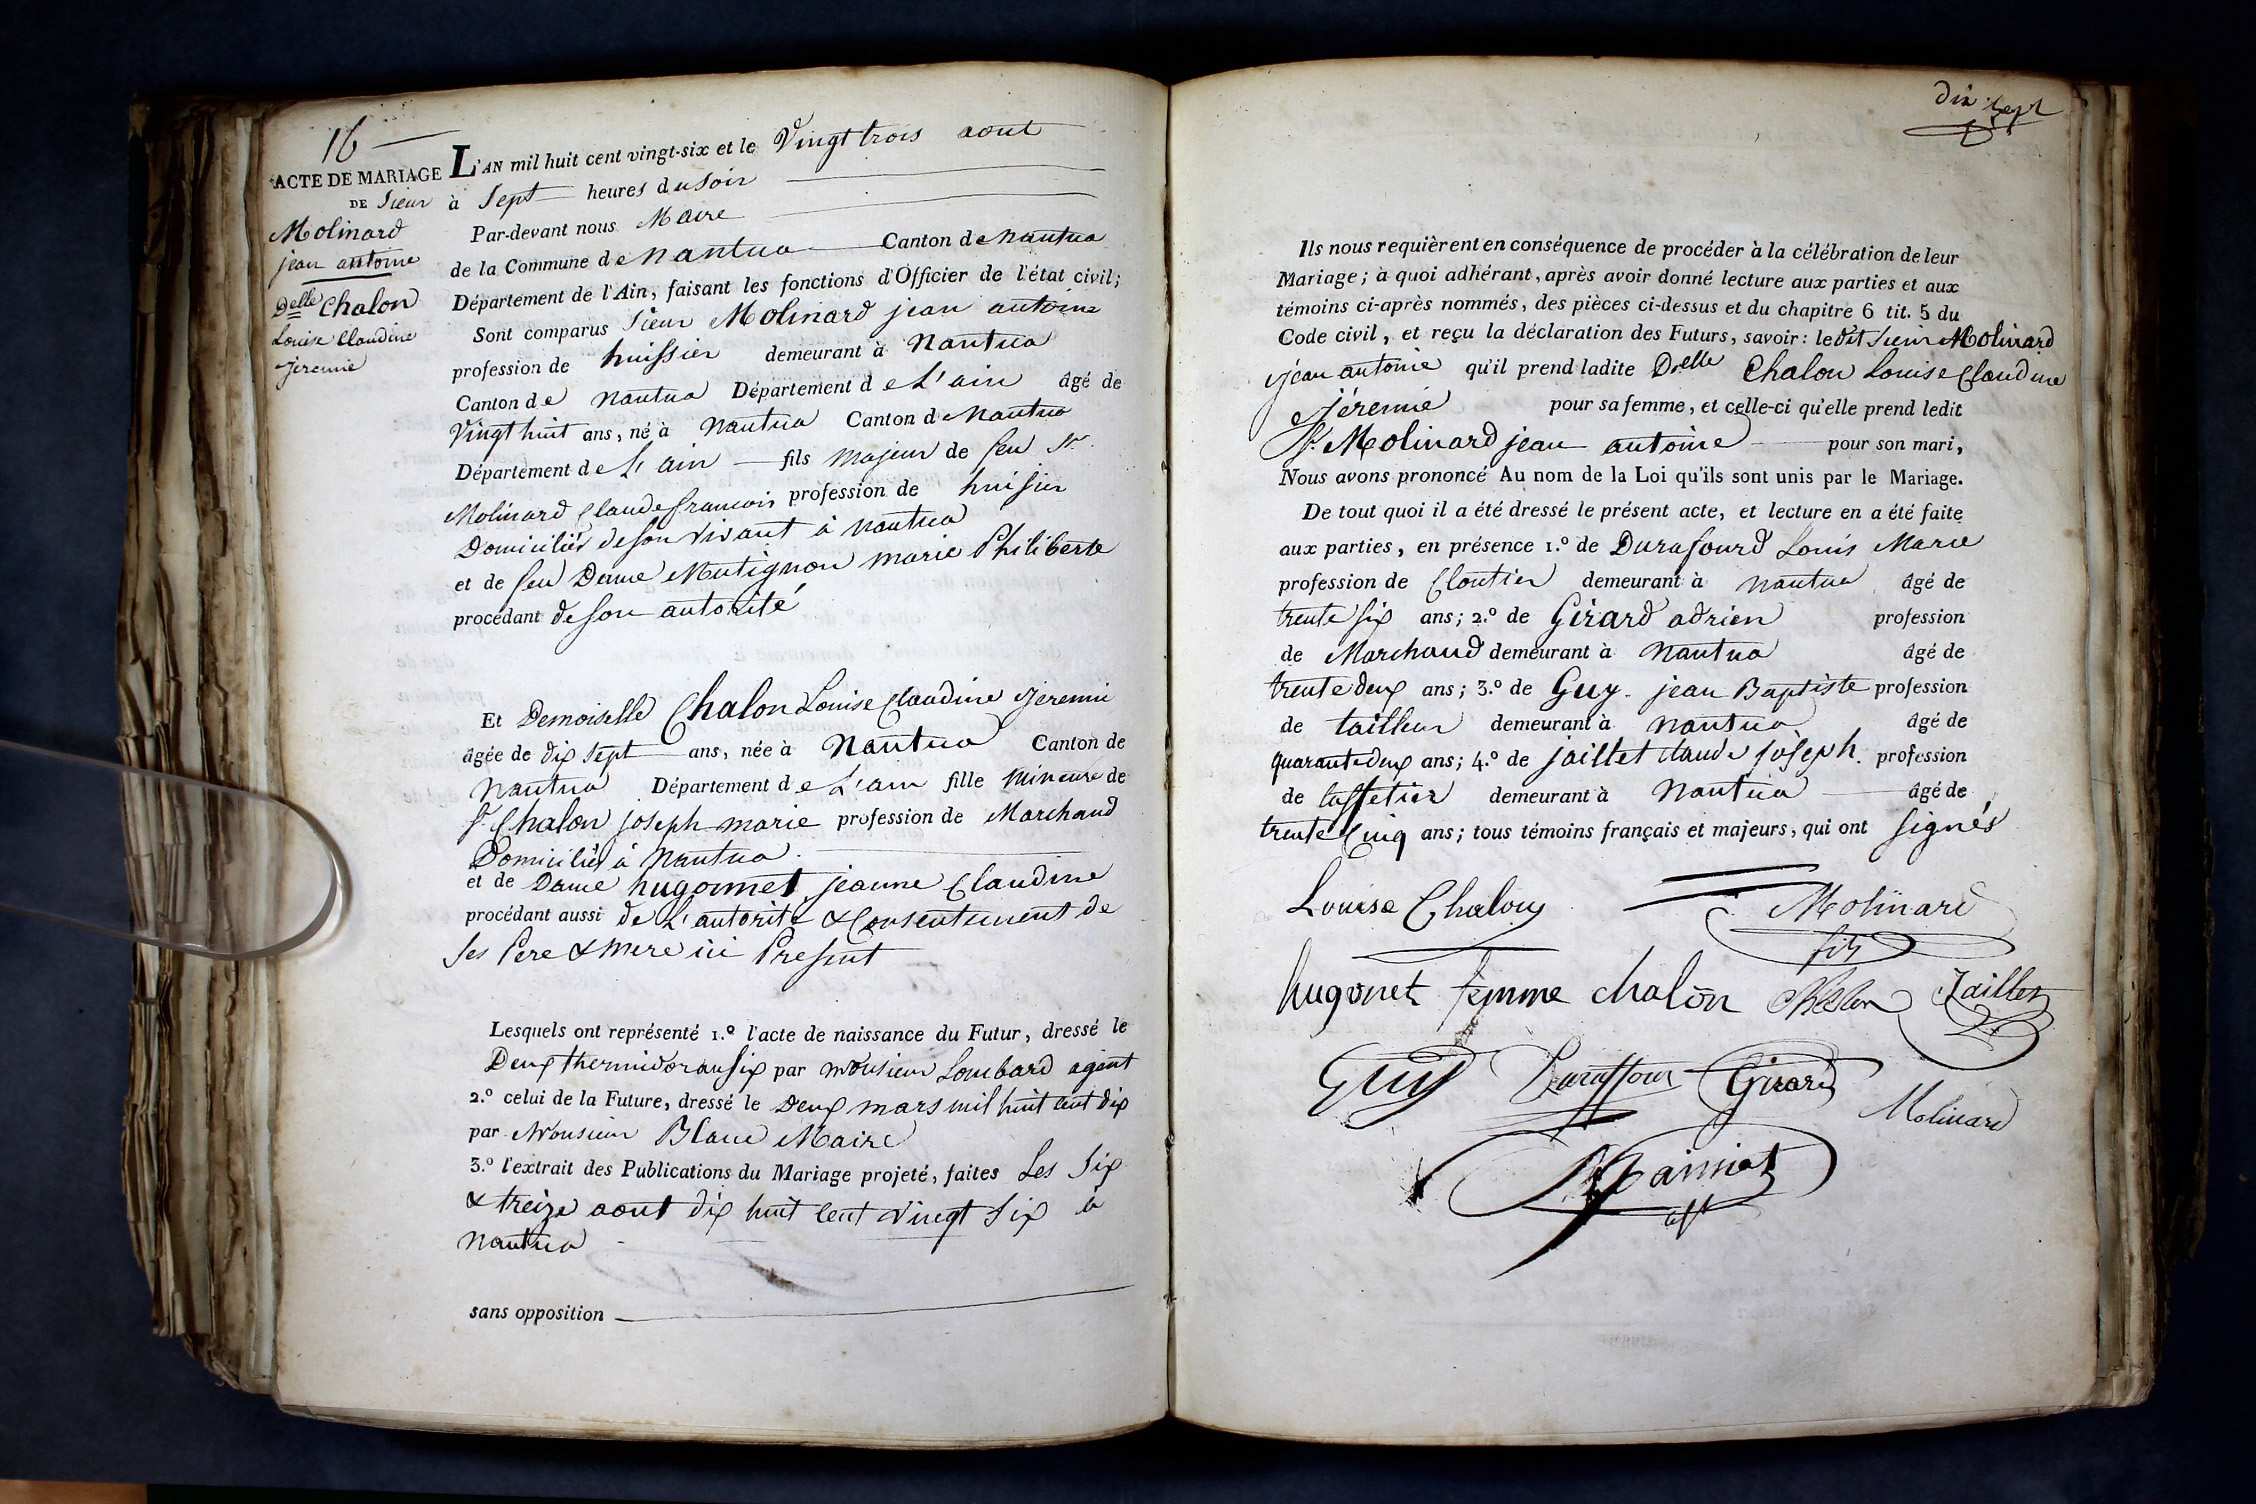 16
ACTE DE MARIAGE
DE Sieur
Molinard
jean antoine
Delle Chalon
Louise Claudine
jeremie
L'AN mil huit cent vingt-six et le Vingt trois aout
à Sept heures du soir
Par-devant nous Maire
de la Commune de Nantua Canton de Nantua
Département de l'Ain, faisant les fonctions d'Officier de l'état civil;
Sont comparus Sieur Molinard jean antoine
profession de huissier demeurant à Nantua
Canton de Nantua Département de L'ain âgé de
Vingt huit ans, né à Nantua Canton de Nantua
Département de L'ain fils majeur de feu Sr
Molinard Claude francois profession de huisier
Domicilié de son vivant à Nantua
et de feu Dame Mutignon marie Philiberte
procédant de son autorité
Et Demoiselle Chalon Louise Claudine jeremie
âgée de dix sept ans, née à Nantua Canton de
Nantua Département de L'ain fille mineure de
Sr Chalon joseph marie profession de Marchand
Domicilié à Nantua
et de Dame hugonnet jeanne Claudine
procédant aussi de L'autorité & Consentement de
ses Pere & mere ici Present
Lesquels ont représenté 1.º l'acte de naissance du Futur, dressé le
Deux thermidor an six par monsieur Lombard agent
2.º celui de la Future, dressé le Deux mars mil huit cent dix
par Monsieur Blanc Maire
3.º l'extrait des Publications du Mariage projeté, faites Les Six
& treize aout dix huit cent vingt six à
Nantua
sans opposition
dix sept
Ils nous requièrent en conséquence de procéder à la célébration de leur
Mariage; à quoi adhérant, après avoir donné lecture aux parties et aux
témoins ci-après nommés, des pièces ci-dessus et du chapitre 6 tit. 5 du
Code civil, et reçu la déclaration des Futurs, savoir: ledit Sieur Molinard
jean antoine qu'il prend ladite Delle Chalon Louise Claudine
jéremie pour sa femme, et celle-ci qu'elle prend ledit
Sr Molinard jean antoine pour son mari,
Nous avons prononcé Au nom de la Loi qu'ils sont unis par le Mariage.
De tout quoi il a été dressé le présent acte, et lecture en a été faite
aux parties, en présence 1.º de Durafourd Louis Marie
profession de Cloutier demeurant à Nantua âgé de
trente six ans; 2.º de Girard adrien profession
de Marchand demeurant à Nantua âgé de
trente deux ans; 3.º de Guy jean Baptiste profession
de tailleur demeurant à Nantua âgé de
quarante deux ans; 4.º de jaillet claude joseph profession
de caffetier demeurant à Nantua âgé de
trente Cinq ans; tous témoins français et majeurs, qui ont signés
Louise Chalon Molinard
fils
hugonet femme chalon Chalon Jaillet
Guy Duraffour Girard
Molinard